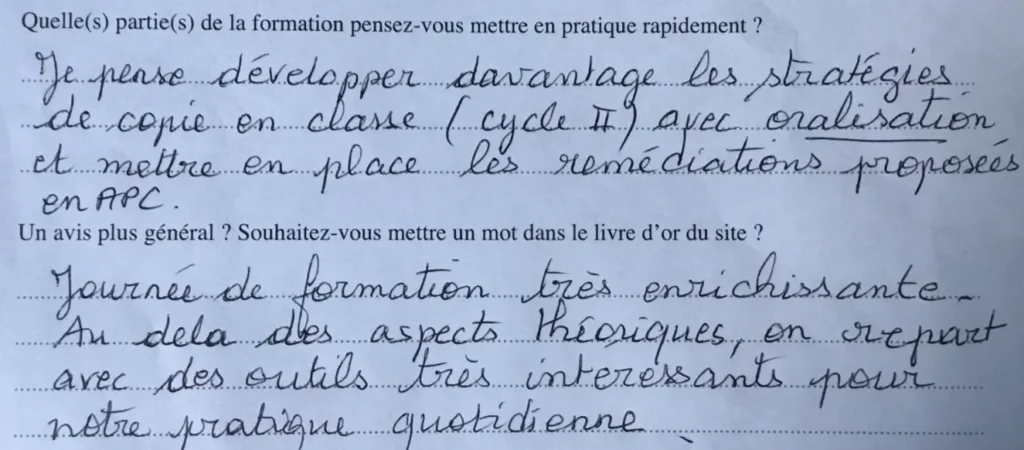 Quelle(s) partie(s) de la formation pensez-vous mettre en pratique rapidement ?
Je pense développer davantage les stratégies
de copie en classe (cycle II) avec oralisation
et mettre en place les remédiations proposées
en APC.
Un avis plus général ? Souhaitez-vous mettre un mot dans le livre d'or du site ?
Journée de formation très enrichissante.
Au dela des aspects théoriques, on repart
avec des outils très interessants pour
notre pratique quotidienne.